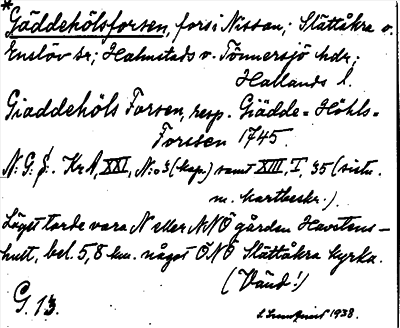 *Gäddehölsforsen, fors i Nissan; Slättåkra o.
Enslöv sr; Halmstads o. Tönnersjö hdr;
Hallands l.
Giaddehöls Forsen, resp. Giädde-Höhls-
Forssen 1745.
N:G:f. Kr A, XXI, N:o 3 (kop.) samt XIII, I, 35 (sistn.
m. kartbeskr.).
Läget torde vara N eller NNÖ gården Havstens-
hult, bel. 5,8 km. något ÖNÖ Slättåkra kyrka.
(Vänd!)
G. 13. 1938.